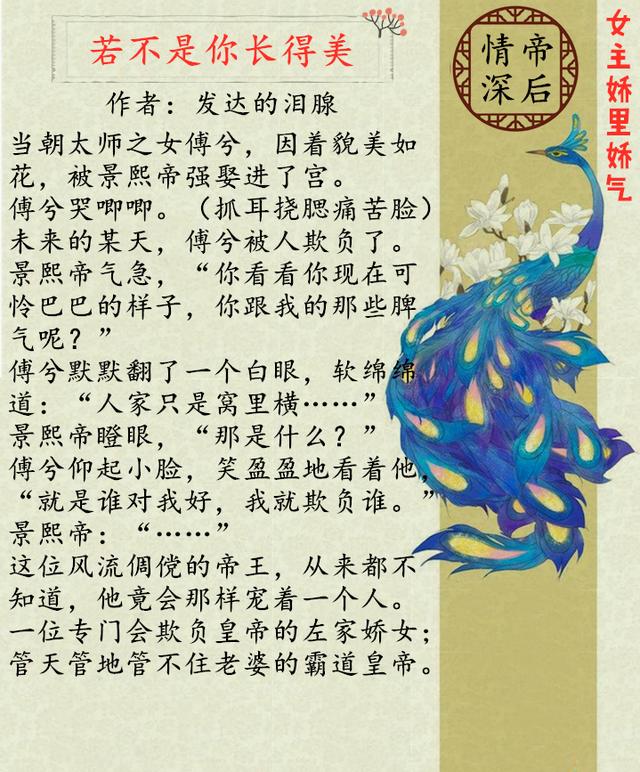 若不是你长得美
作者：发达的泪腺
当朝太师之女傅兮，因着貌美如
花，被景熙帝强娶进了宫。
傅兮哭唧唧。（抓耳挠腮痛苦脸）
未来的某天，傅兮被人欺负了。
景熙帝气急，“你看看你现在可
怜巴巴的样子，你跟我的那些脾
气呢？”
傅兮默默翻了一个白眼，软绵绵
道：“人家只是窝里横……”
景熙帝瞪眼，“那是什么？”
傅兮仰起小脸，笑盈盈地看着他，
“就是谁对我好，我就欺负谁。”
景熙帝：“……”
这位风流倜傥的帝王，从来都不
知道，他竟会那样宠着一个人。
一位专门会欺负皇帝的左家娇女；
管天管地管不住老婆的霸道皇帝。
帝后
情深
女主娇里娇气